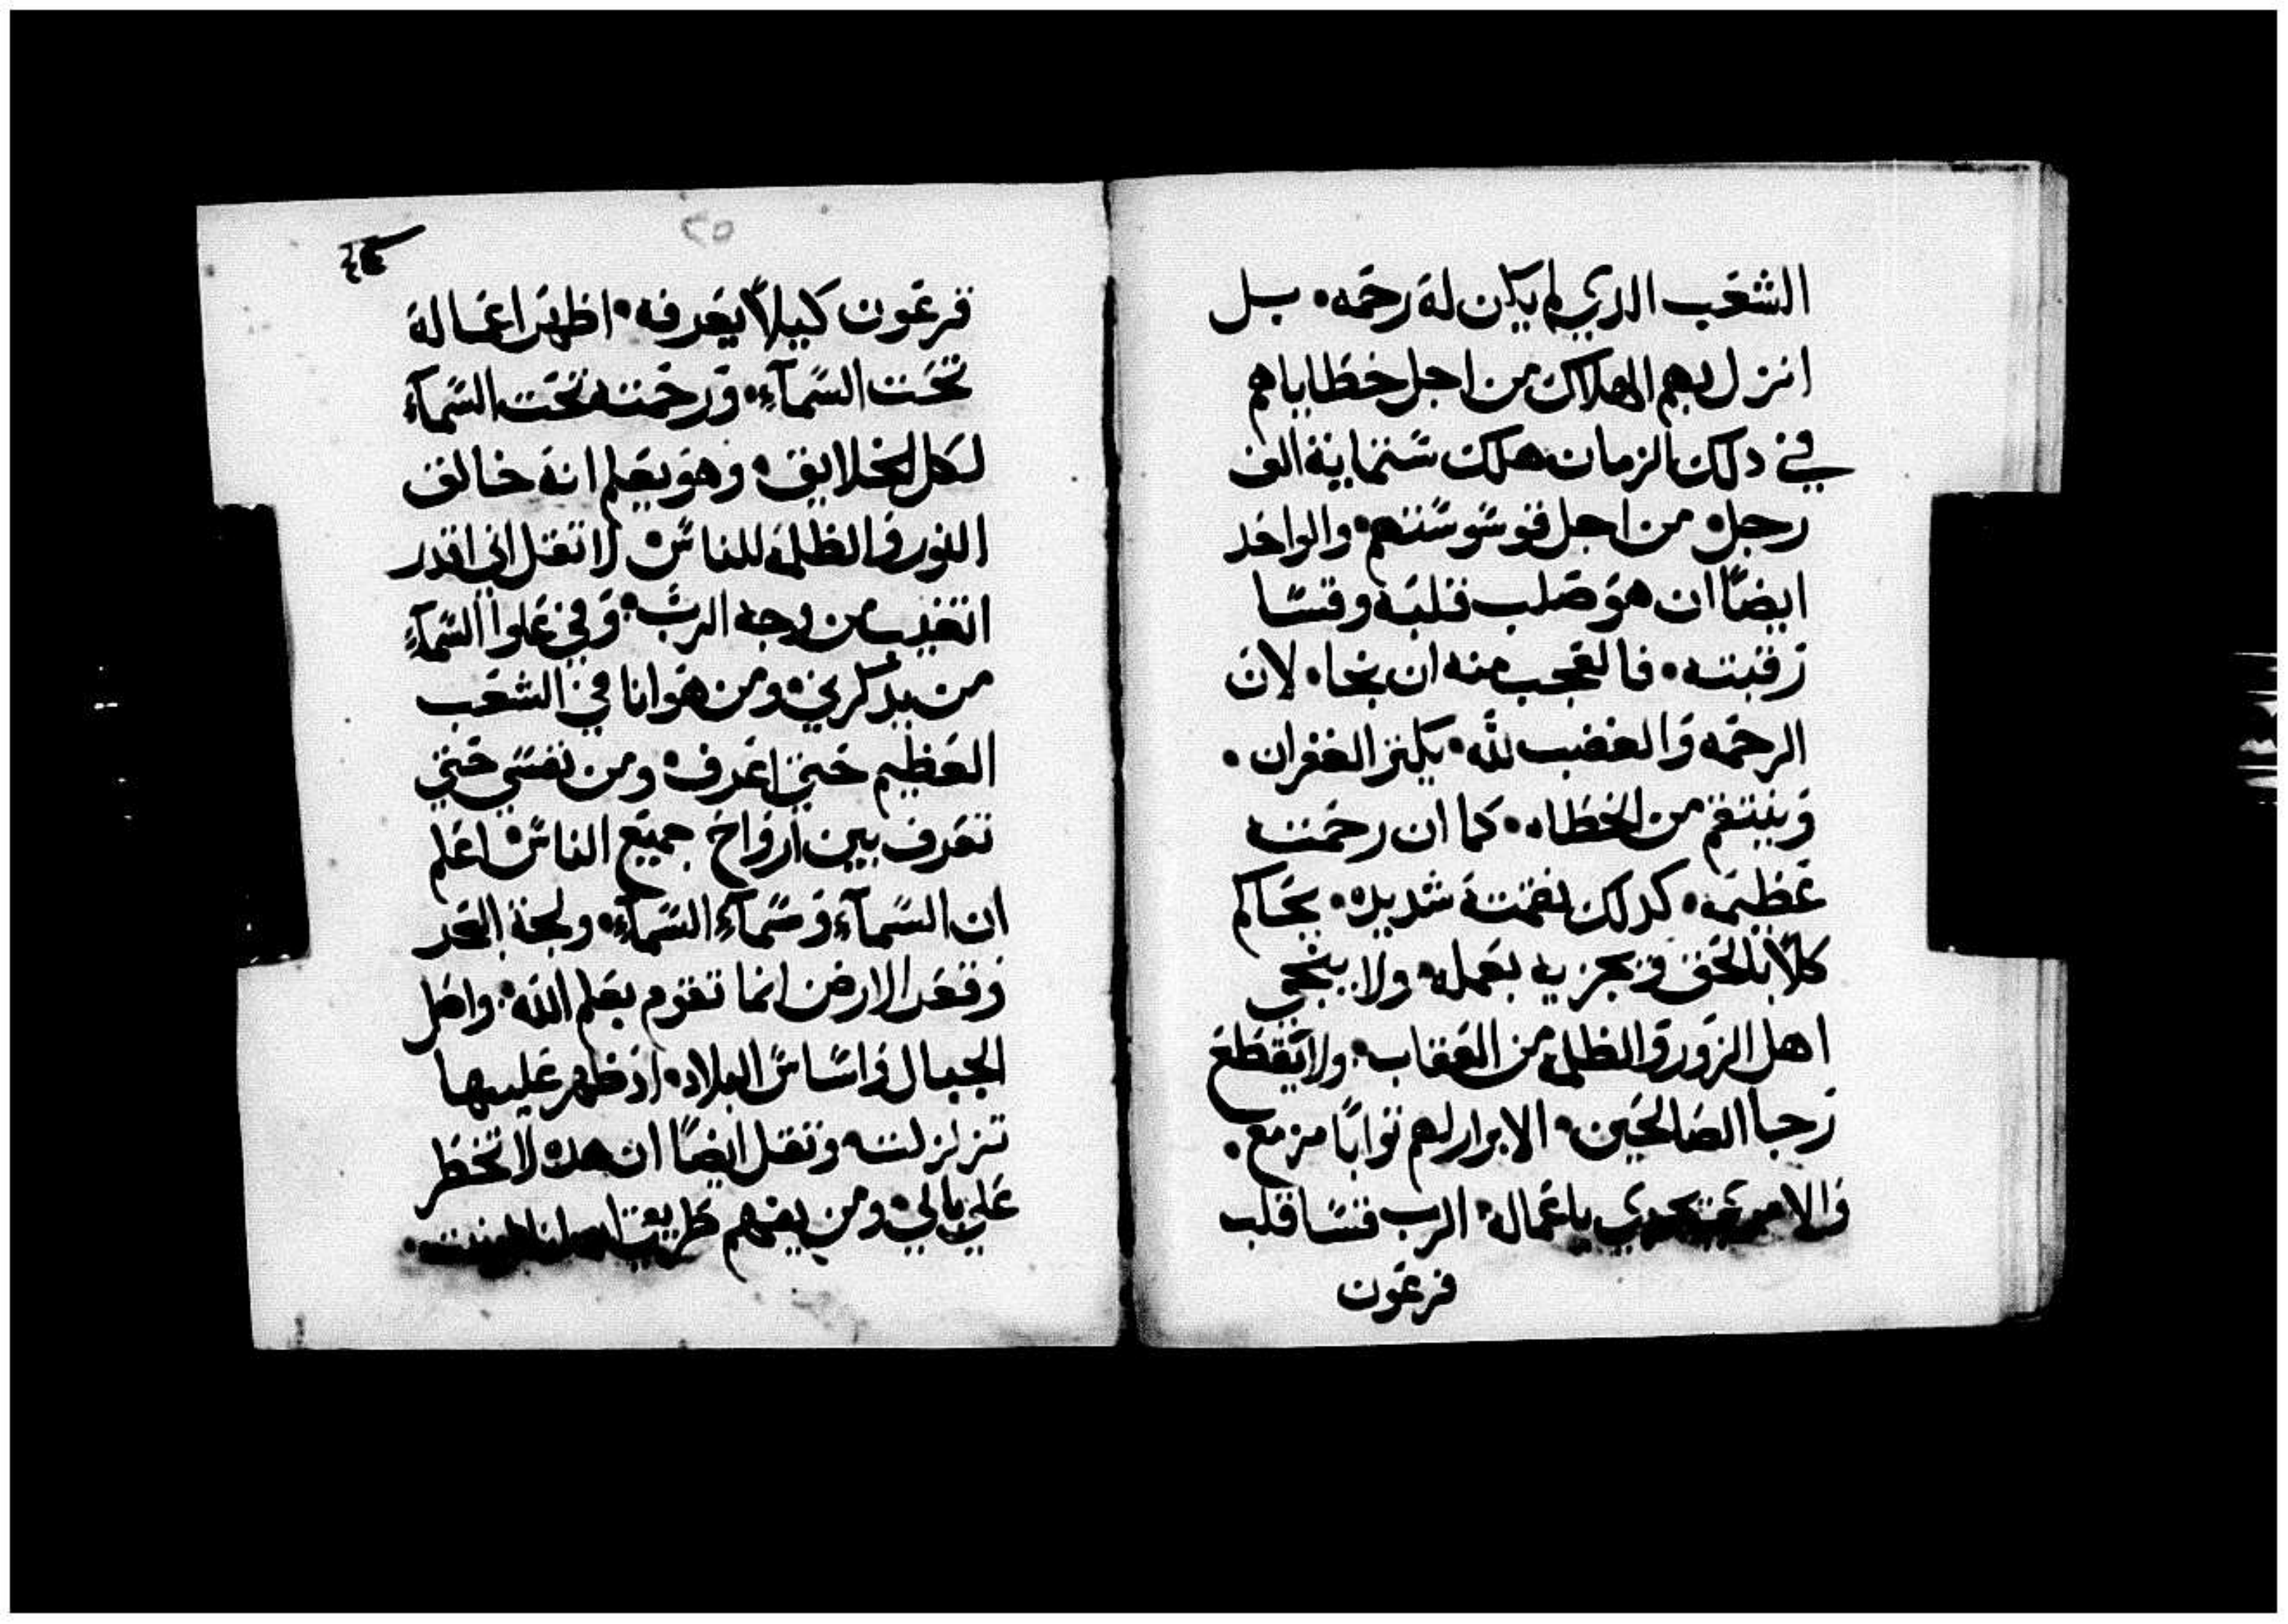 الشعَب الدي لم يكن لهَ رحمَه • بل
انزل بهم الهلاك من اجل خطاياهم
في دلك الزمان هلك ستماية الف
رجل • من اجل قوسوستهم • والواحَد
ايضًا ان هوَ صَلب قلبَه وقسا
رقبته • فالعَجب منه ان نجا • لان
الرحمَه وَالغضب لله • يكنز الغفران •
وَينتقم من الخطاه • كما ان رحمَته
عَظيمَه • كدلك نقمته شديده • يحَاكم
كلاً بالحَق وَيجزيه بعَمله • ولا ينجي
اهل الزور وَالظلم من العَقاب • ولا يَقطعَ
رَجا الصَالحَين • الابرار لهم ثوابًا مزمع •
وَالامر يَاعَماله • الرب قسا قلب
فرعَون
٢٥
فرعَون كيلا يعَرفه • اظهرَ اعمَاله
تحَت السمآء • وَرحمَته تحَت السمآء
لكل الخلايق • وهوَ يعَلم انهَ خالق
النور وَالظلمَه للناس • لا تقل اني اقدر
اتغيب من وجه الرب • وَفي عَلوا السمآء
من يدكرني • ومن هوَ انا في الشعَب
العَظيم حَتي اعَرف • ومن نفسي حَتي
تعَرف بين ارَواحَ جميعَ الناس • اعَلم
ان السمآء وَسمآء السمآء • ولجة البَحر
وَقعَر الارض انما تقوم بعَلم الله • واصَل
الجبال وَاساس البلاد • اذ ظهر عَليها
تزلزلت • وتقل ايضًا ان هده لا تخطَر
عَلي بالي • ومن يفهم طريق